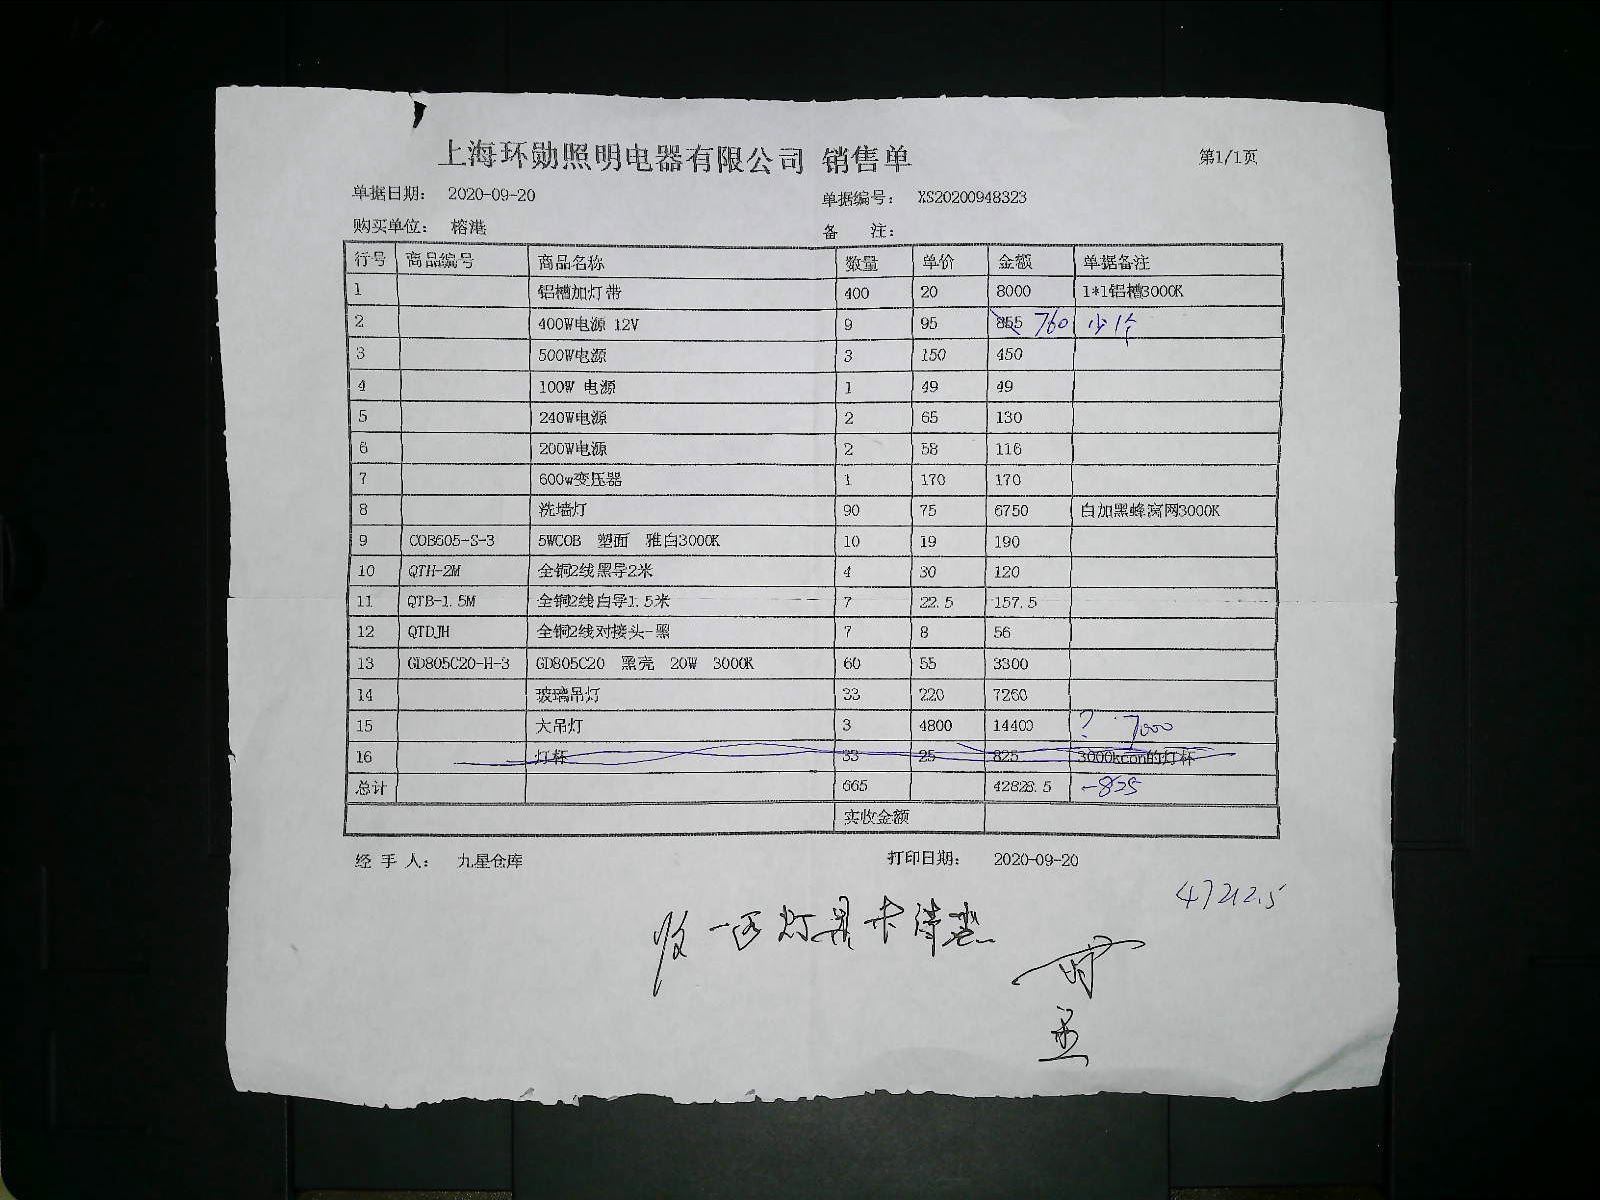 上海环勋照明电器有限公司 销售单 第1/1页
单据日期: 2020-09-20 单据编号: XS20200948323
购买单位: 榕港 备 注:
行号 商品编号 商品名称 数量 单价 金额 单据备注
1 铝槽加灯带 400 20 8000 1*1铝槽3000K
2 400W电源 12V 9 95 855 760 少1个
3 500W电源 3 150 450
4 100W 电源 1 49 49
5 240W电源 2 65 130
6 200W电源 2 58 116
7 600w变压器 1 170 170
8 洗墙灯 90 75 6750 白加黑蜂窝网3000K
9 COB605-S-3 5WCOB 塑面 雅白3000K 10 19 190
10 QTH-2M 全铜2线黑导2米 4 30 120
11 QTB-1.5M 全铜2线白导1.5米 7 22.5 157.5
12 QTDJH 全铜2线对接头-黑 7 8 56
13 GD805C20-H-3 GD805C20 黑壳 20W 3000K 60 55 3300
14 玻璃吊灯 33 220 7260
15 大吊灯 3 4800 14400 ? 7000
16 灯杯 33 25 825 3000kcon的灯杯
总计 665 42828.5 -825
实收金额
经 手 人: 九星仓库 打印日期: 2020-09-20
47212.5
收一区灯具